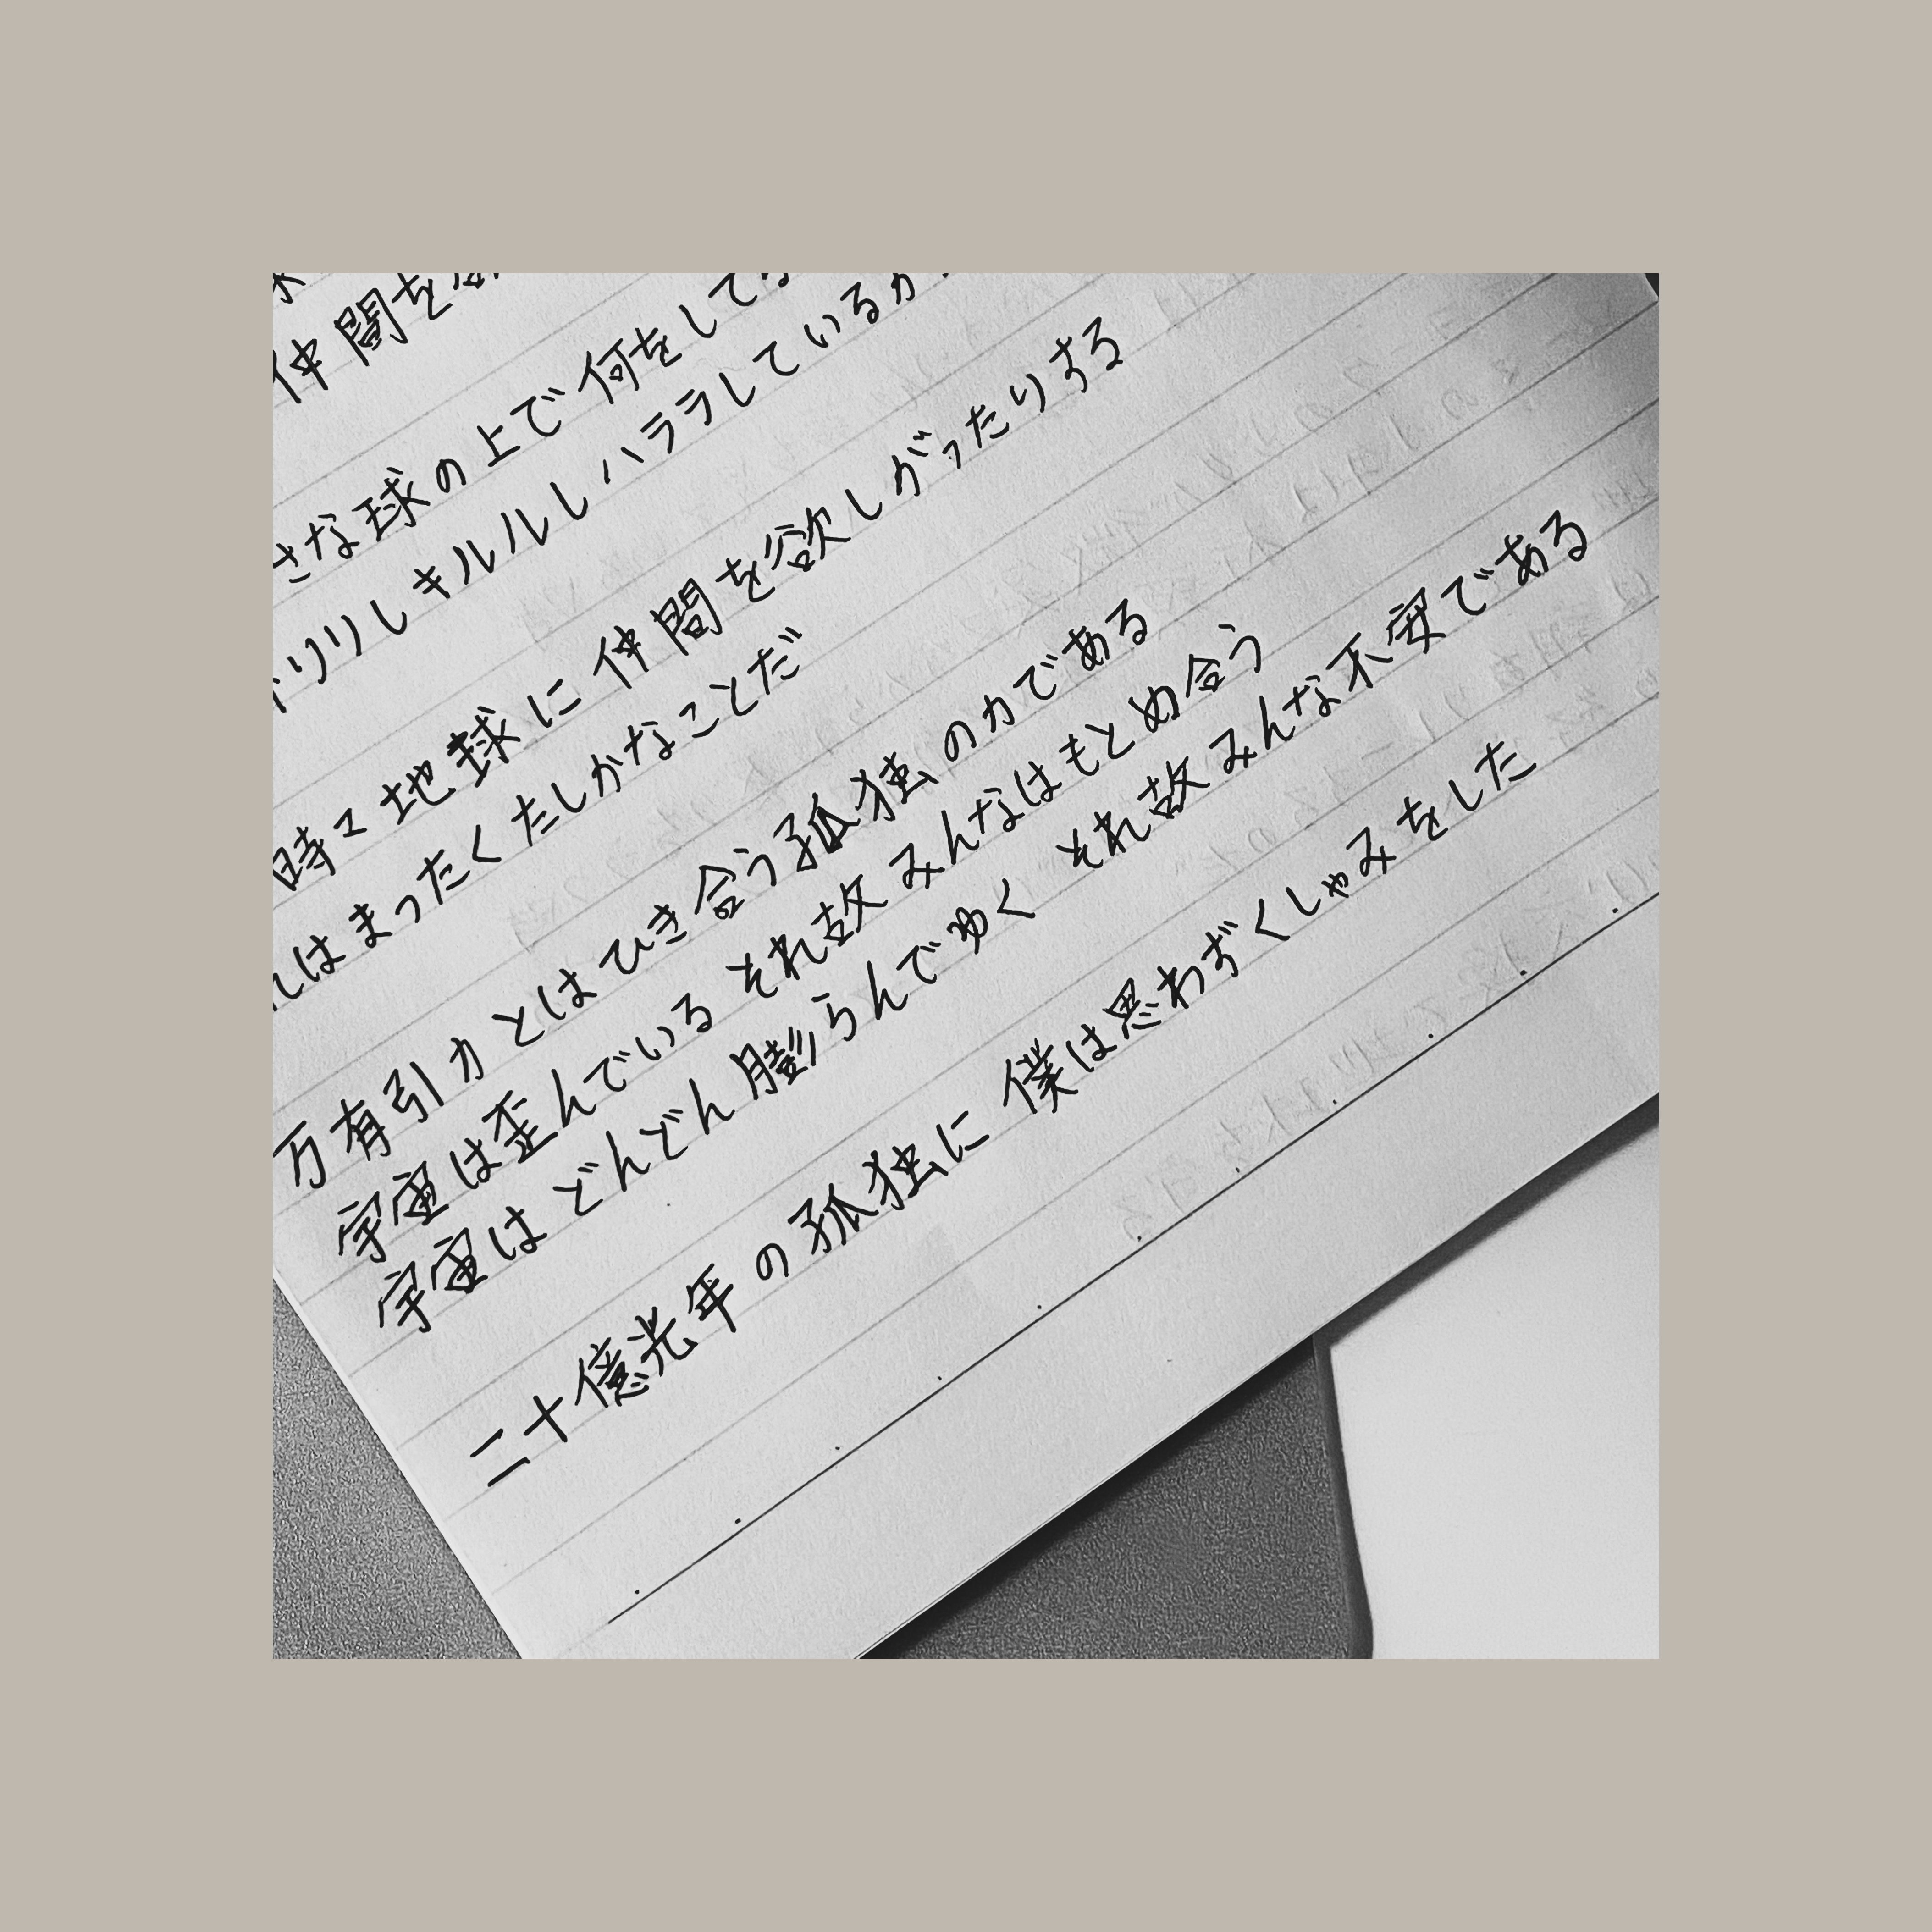 仲間を
さな球の上で何をして
リリしキルルしハララしているか
時々地球に仲間を欲しがったりする
はまったくたしかなことだ
万有引力とはひき合う孤独の力である
宇宙は歪んでいる それ故みんなはもとめ合う
宇宙はどんどん膨らんでゆく それ故みんな不安である
二十億光年の孤独に 僕は思わずくしゃみをした